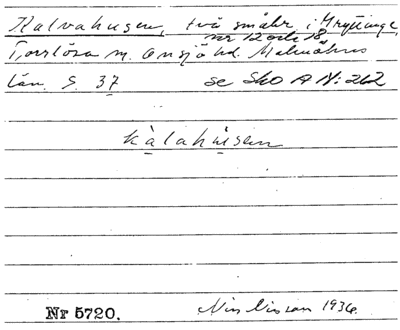 Kalvahusen, två smålr. i Gryttinge,
nr 12 och 18,
Torrlösa sn. Onsjö hd. Malmöhus
län. S. 37 se Sko A N: 262
kàlahùsen
Nr 5720. Nils Nilsson 1936.